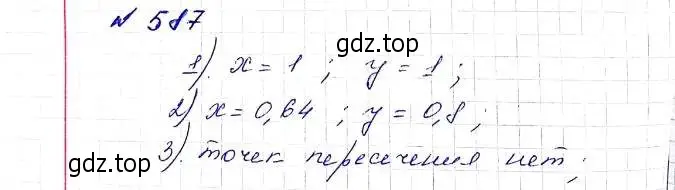 № 587
gdz.top
1). x = 1 ; y = 1 ;
2) x = 0,64 ; y = 0,8 ;
gdz.top
3). точек пересечения нет ;
gdz.top